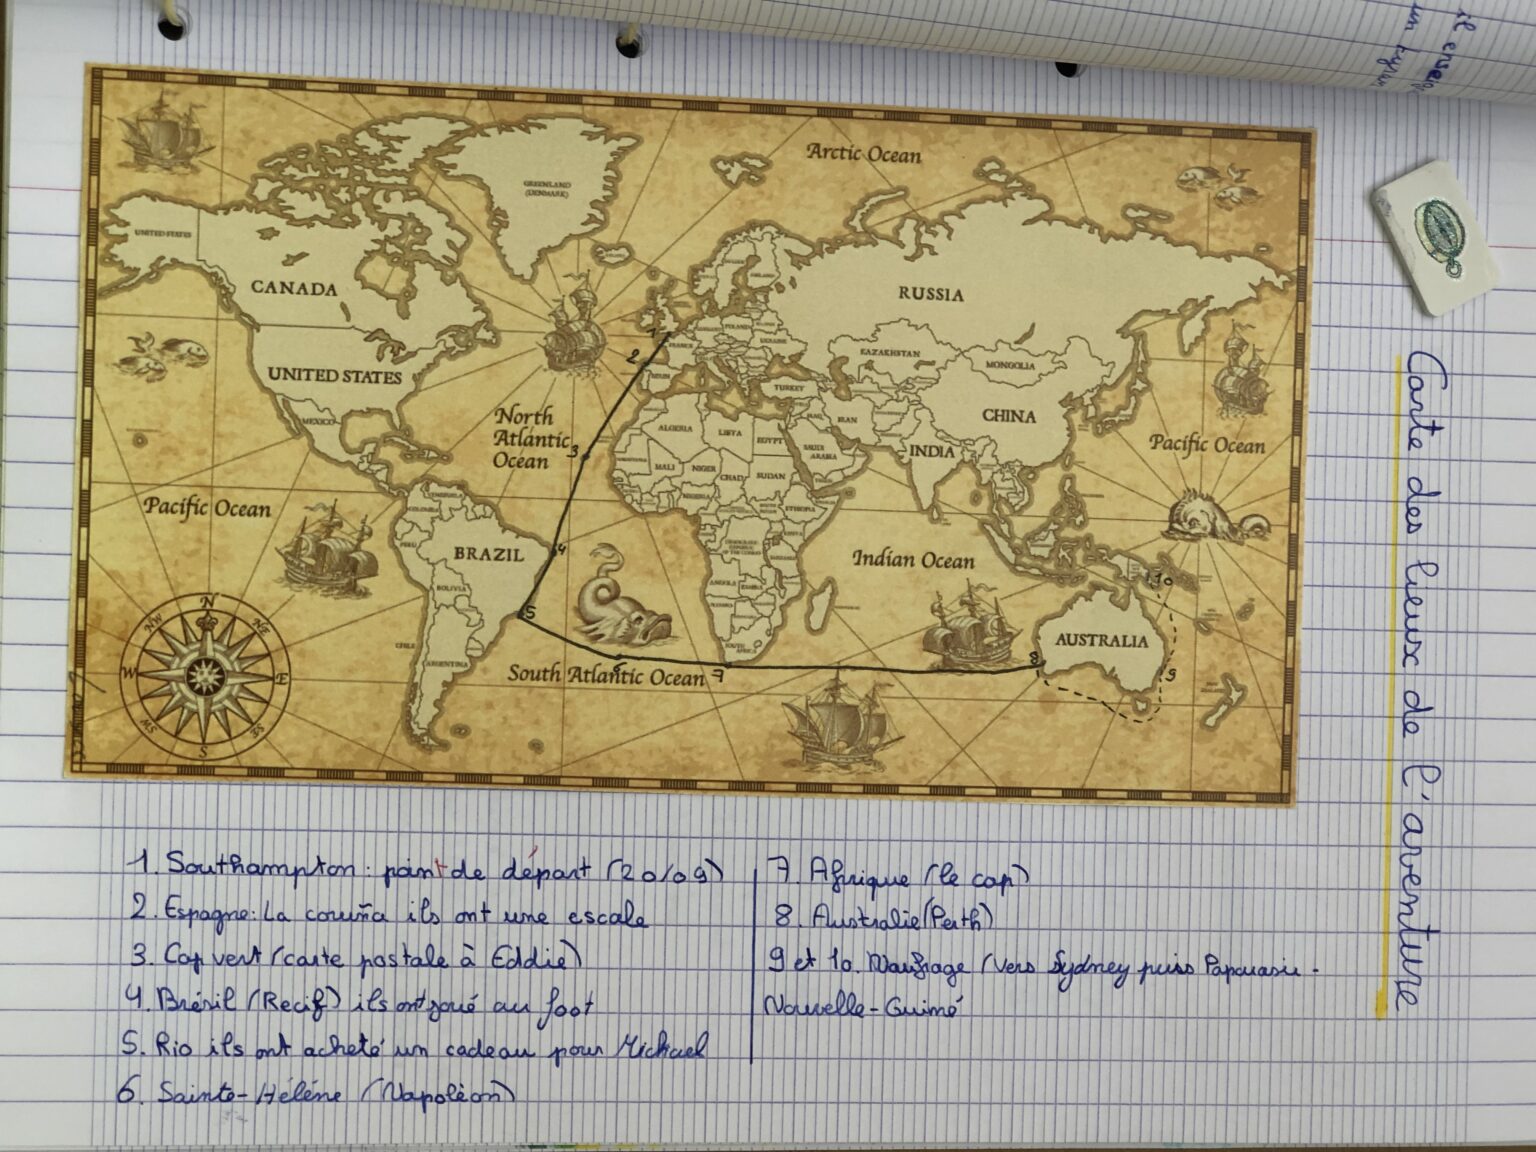 Carte des lieux de l'aventure
il enseig
un kyrie
Arctic Ocean
GREENLAND
(DENMARK)
UNITED STATES
CANADA
RUSSIA
UNITED STATES
MEXICO
North
Atlantic
Ocean
Pacific Ocean
Pacific Ocean
KAZAKHSTAN
MONGOLIA
CHINA
INDIA
TURKEY
IRAN
SAUDI
ARABIA
FRANCE
SPAIN
POLAND
UKRAINE
ALGERIA
LIBYA
EGYPT
MALI
NIGER
CHAD
SUDAN
ETHIOPIA
ANGOLA
BRAZIL
BOLIVIA
PERU
CHILE
ARGENTINA
Indian Ocean
AUSTRALIA
South Atlantic Ocean
N
NE
E
SE
S
SW
W
NW
1
2
3
4
5
6
7
8
9
10
1. Southampton: point de départ (20/09)
2. Espagne: La coruña ils ont une escale
3. Cap vert (carte postale à Eddie)
4. Brésil (Recif) ils ont joué au foot
5. Rio ils ont acheté un cadeau pour Michael
6. Sainte-Hélène (Napoléon)
7. Afrique (le cap)
8. Australie (Perth)
9 et 10. Naufrage (vers Sydney puis Papouasie-
Nouvelle-Guiné